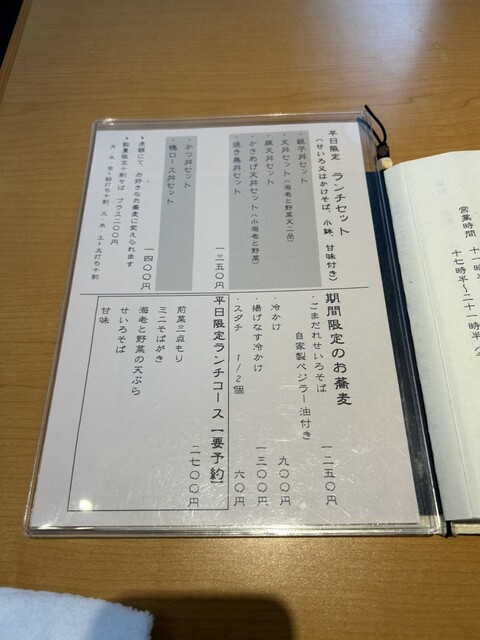 平日限定 ランチセット
(せいろ又はかけそば、小鉢、甘味付き)
・親子丼セット
・天丼セット(海老と野菜天二品)
・豚天丼セット
・かきあげ天丼セット(小海老と野菜)
・焼き鳥丼セット
一三五〇円
・かつ丼セット
・鴨ロース丼セット
一四〇〇円
♦差額にて、お好きなお蕎麦に変えられます
♦数量限定十割そば プラス二〇〇円
期間限定のお蕎麦
・ごまだれせいろそば
自家製ベジラー油付き
一二五〇円
・冷かけ
九〇〇円
・揚げなす冷かけ
一三〇〇円
・スダチ 1/2個
六〇円
平日限定ランチコース【要予約】
二七〇〇円
前菜三点もり
ミニそばがき
海老と野菜の天ぷら
せいろそば
甘味
営業時間
十七時半〜二十一時半